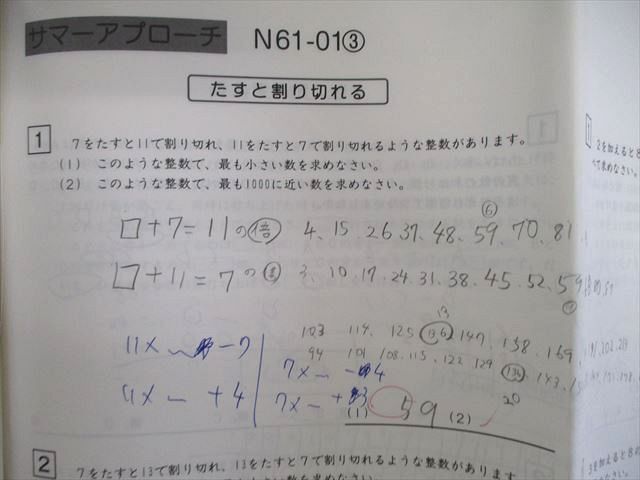 サマーアプローチ N61-01③
たすと割り切れる
1 7をたすと11で割り切れ、11をたすと7で割り切れるような整数があります。
(1) このような整数で、最も小さい数を求めなさい。
(2) このような整数で、最も1000に近い数を求めなさい。
□+7=11の倍 4、15、26 37、48、59、70、81
⑥
□+11=7の倍 3、10、17、24、31、38、45、52、59
13
103 114、125 136 147、158、169
94 101 108、115、122 129
20
11× -7
11× +4
7× -4
7× +3
(1) 59 (2)
2 7をたすと13で割り切れ、13をたすと7で割り切れるような整数があります。
2を加えると8